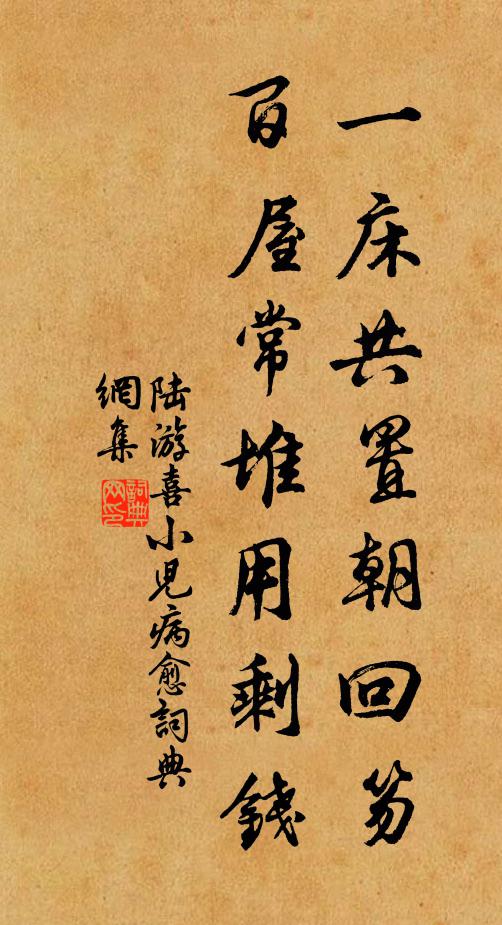 一床共置朝回笏
百屋常堆用剩錢
陆游喜小児病愈詞典
網集
詞典
网印